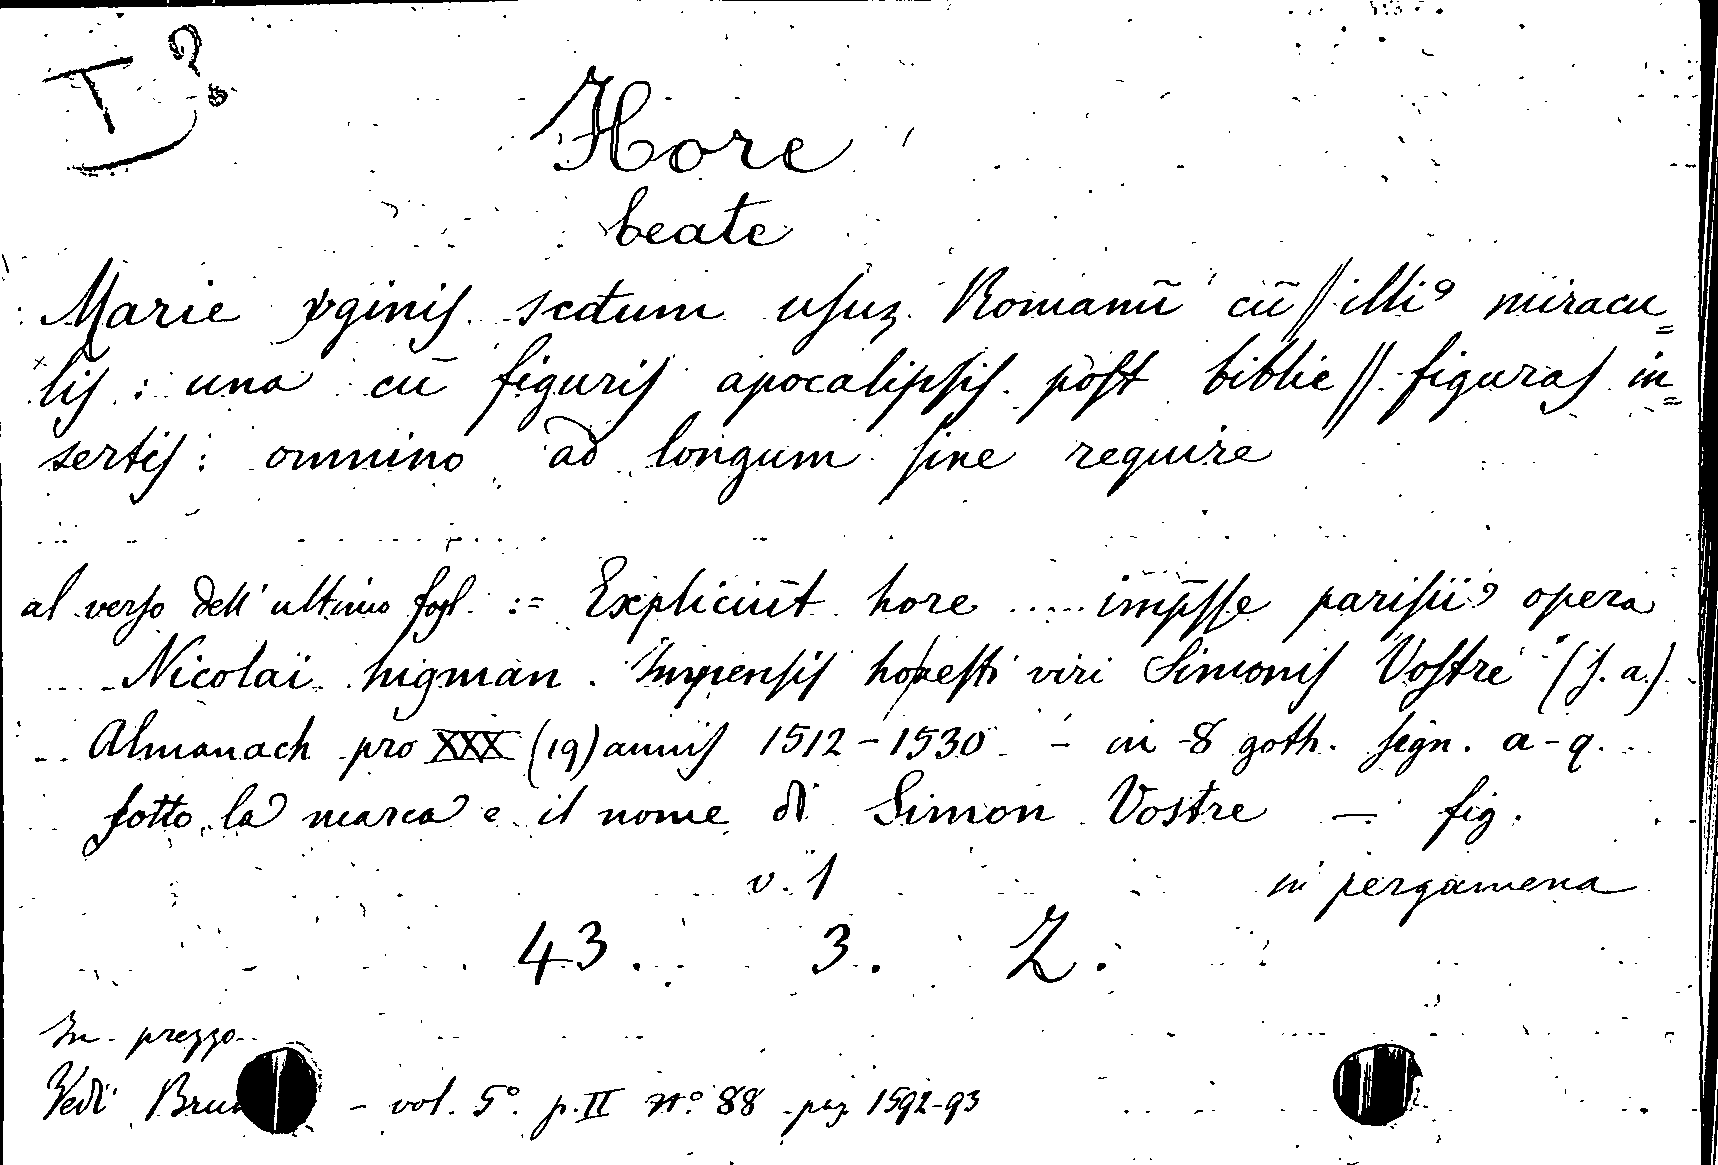 I?
Hore
beate
Marie v̄ginis scd̄um usuz Romanū cū // illiꝰ miracu=
lis : una cū figuris apocalipsis post biblie // figuras in=
sertis : omnino ad longum sine require
al verso dell' ultimo fogl. := Expliciūt hore ..... imp̄sse parisiiꝰ opera
Nicolai higman . Impensis honesti viri Simonis Vostre (s. a.)
Almanach pro XXX (19) annis 1512 - 1530 - in -8 goth. sign. a-q.
sotto la marca e il nome di Simon Vostre — fig.
v. 1 in pergamena
43. 3. Z.
In prezzo
Vedi - vol. 5°. p. II n.° 88 pag 1592-93